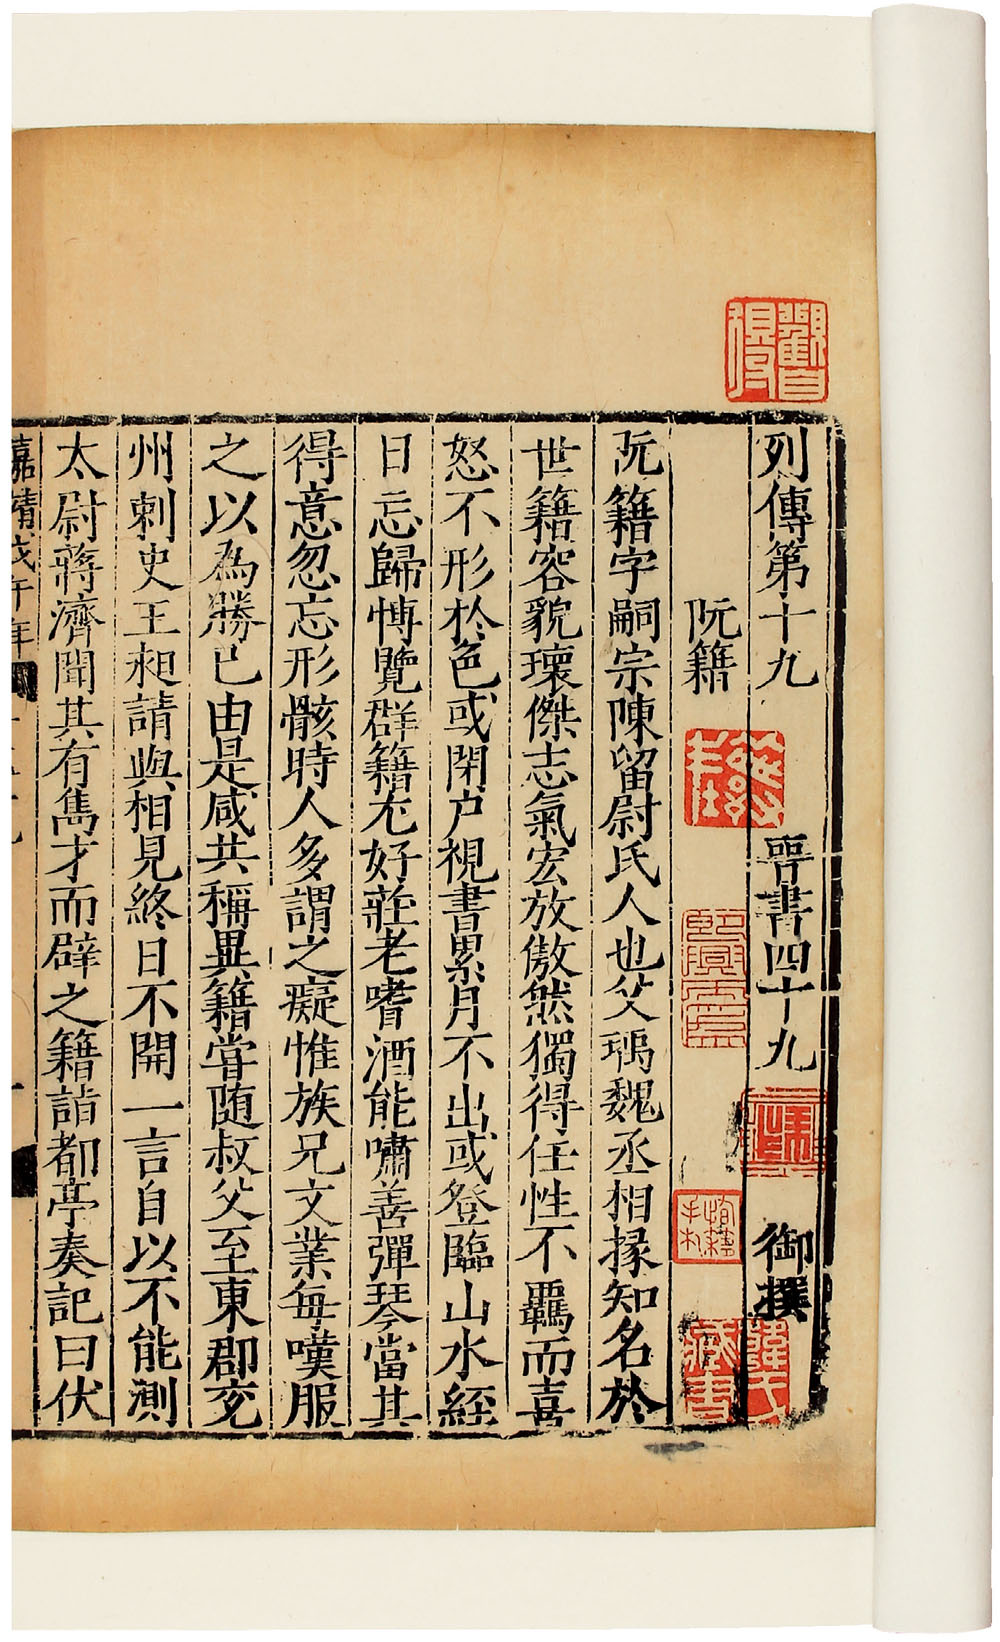 列傳第十九 晉書四十九 御撰
阮籍
阮籍字嗣宗陳留尉氏人也父瑀魏丞相掾知名於
世籍容貌瓌傑志氣宏放傲然獨得任性不羈而喜
怒不形於色或閉户視書累月不出或登臨山水經
日忘歸博覽群籍尤好莊老嗜酒能嘯善彈琴當其
得意忽忘形骸時人多謂之癡惟族兄文業每嘆服
之以為勝已由是咸共稱異籍嘗随叔父至東郡兖
州刺史王昶請與相見終日不開一言自以不能測
太尉蔣濟聞其有雋才而辟之籍詣都亭奏記曰伏
嘉靖戊午年